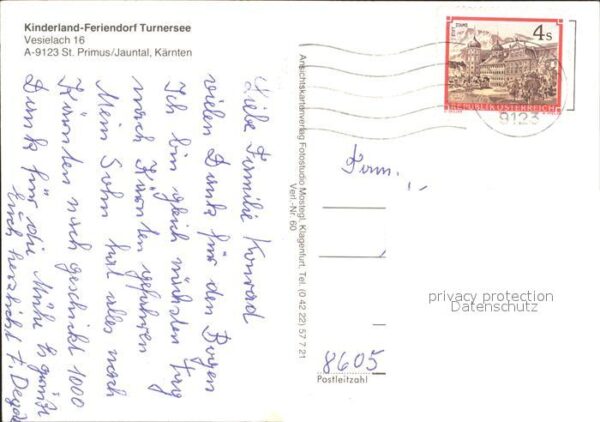 Kinderland-Feriendorf Turnersee
Vesielach 16
A-9123 St. Primus/Jauntal, Kärnten
Liebe Familie Konrad
vielen Dank für den Bogen
Ich bin gleich nächsten Tag
nach Kärnten gefahren
Mein Sohn hat alles nach
Kärnten nach geschickt 1000
Dank für die Mühe Es grüßt
Euch herzlichst F.
Ansichtskartenverlag Fotostudio Mostegl, Klagenfurt, Tel. (0 42 22) 57 7 21
Verl.-Nr. 60
STIFT STAMS
4 S
REPUBLIK ÖSTERREICH
9123
Fam.
privacy protection
Datenschutz
8605
Postleitzahl